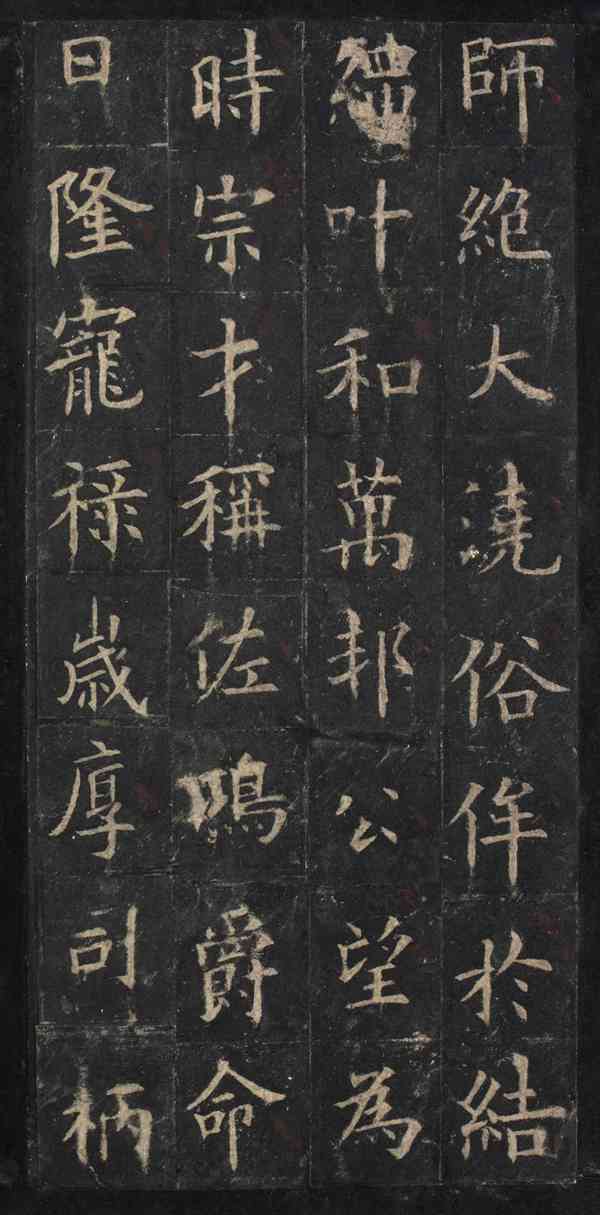 師絶大澆俗侔於結
繩叶和萬邦公望為
時宗才稱佐鳴爵命
日隆寵祿歲厚司柄